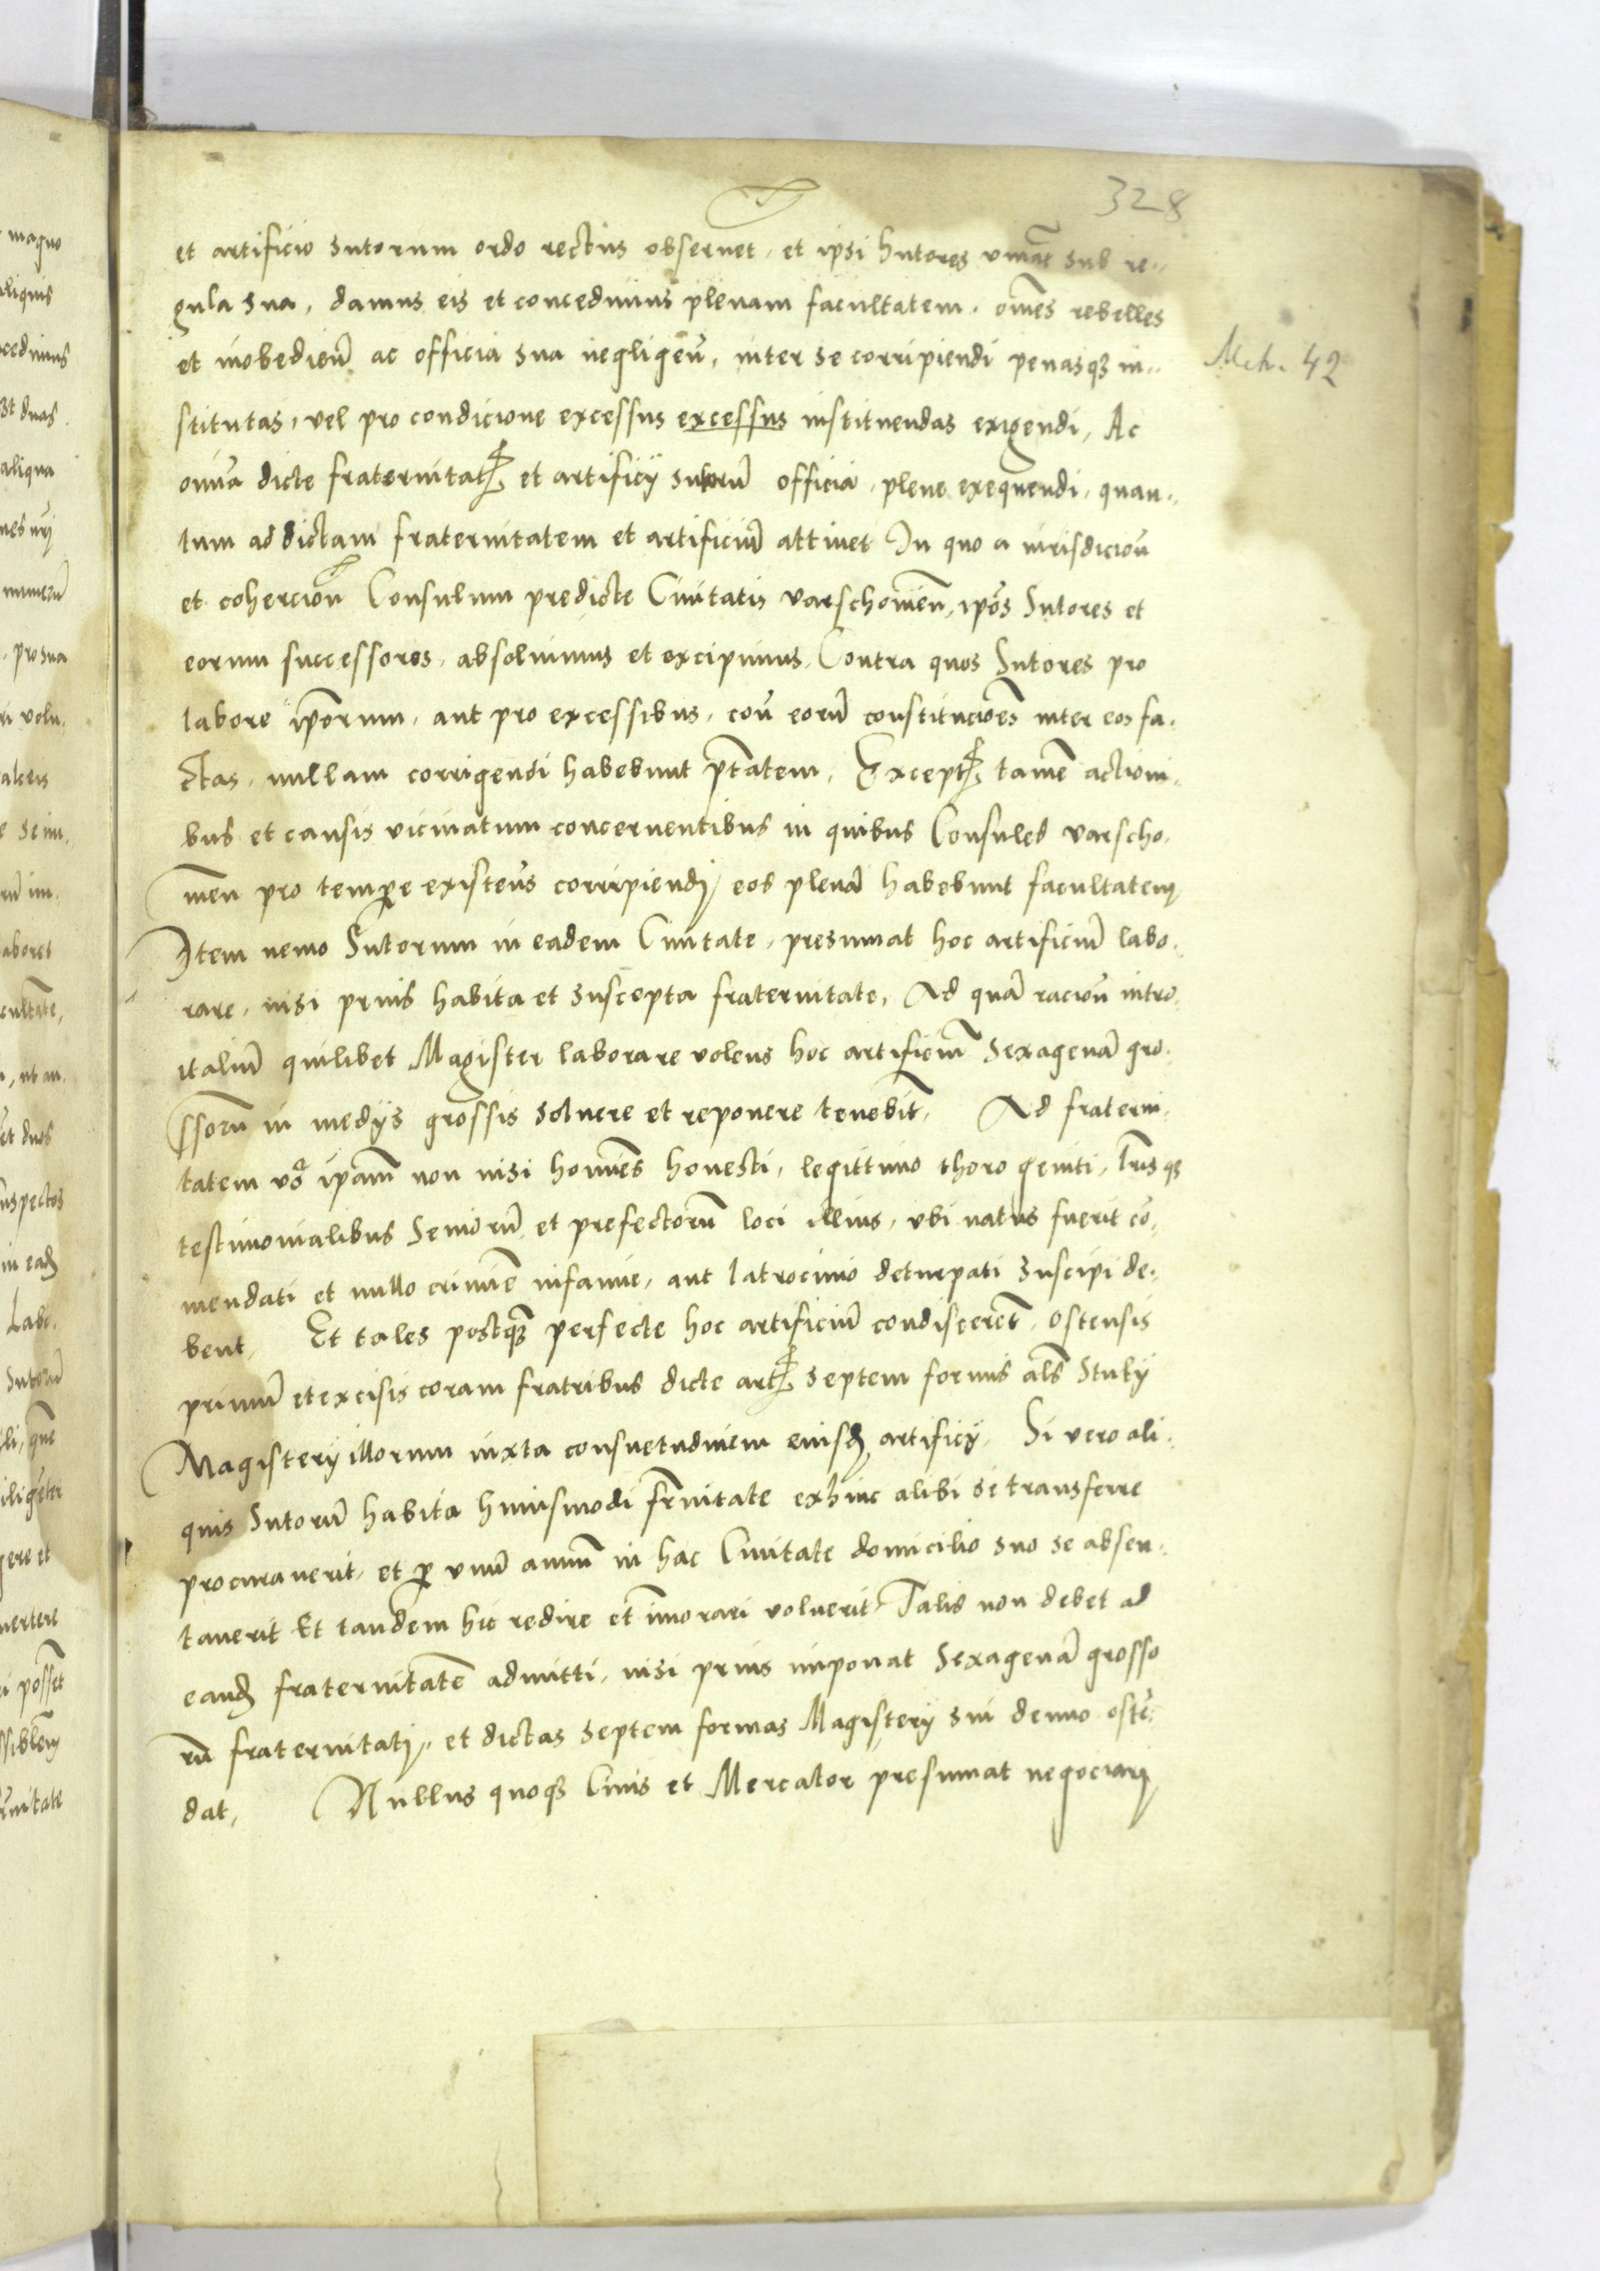 328
et artificio sutorum ordo rectius observet, et ipsi Sutores vivāt sub re-
gula sua, damus eis et concedimus plenam facultatem, om̄es rebelles
et inobediēn ac officia sua negligeñ, inter se corripiendi penasq3 in-
Metr. 42
stitutas, vel pro condicione excessus excessus instituendas exigendi, Ac
om̄ia dicte fraternitatꝭ et artificij sutorū officia, plene exequendi, quan-
tum ad dictam fraternitatem et artificiū attinet In quo a iurisdicioñ
et cohercioñ Consulum predicte Civitatis varschovieñ, ip̄os Sutores et
eorum successores, absolvimus et excipimus, Contra quos Sutores pro
labore ip̄orum, aut pro excessibus, coñ eorū constituciōes inter eos fa-
ctas, nullam corrigendi habebunt p̄tatem, Exceptꝭ tamē actioni-
bus et causis vicinatum concernentibus in quibus Consules varscho-
vien pro temp̄e existeñs corripiendi eos plenā habebunt facultatem
Item nemo Sutorum in eadem Civitate, presumat hoc artificiū labo-
rare, nisi prius habita et suscepta fraternitate, Ad quā racioñ intro-
italiū quilibet Magister laborare volens hoc artificiū sexagenā gro-
ssorū in medijs grossis solvere et reponere tenebit̄, Ad fraterni-
tatem v̄o ip̄am non nisi homīes honesti, legittimo thoro geniti, lr̄isq3
testimonialibus Seniorū et prefectorū loci illius, ubi natus fuerit cō-
mendati et nullo crimīe infamie, aut latrocinio deturpati suscipi de-
bent, Et tales postq̄3 perfecte hoc artificiū condiscerēt, ostensis
primū et excisis coram fratribus dicte artꝭ septem formis al̄s Stuky
Magisterij illorum iuxta consuetudinem eiusd̄ artificij, Si vero ali-
quis Sutorū habita huiusmodi fr̄nitate exhinc alibi se transferre
procuraverit, et ꝑ unū annū in hac Civitate domicilio suo se absen-
taverit Et tandem hic redire et īmorari voluerit Talis non debet ad
eand̄ fraternitatē admitti, nisi prius imponat Sexagenā grosso
rū fraternitati, et dictas septem formas Magisterij sui denuo ostē-
dat, Nullus quoq3 Civis et Mercator presumat negociari